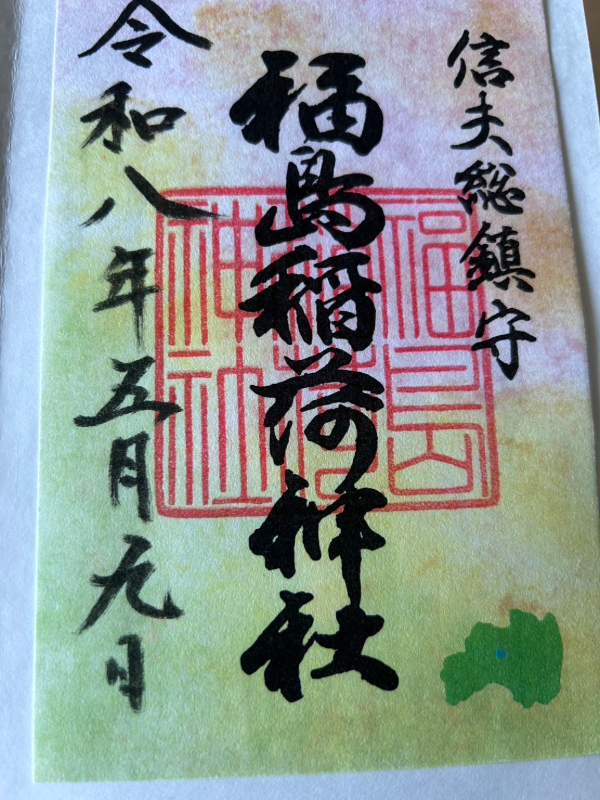 信夫総鎮守
福島稲荷神社
令和八年五月元日
福島
稲荷
神社